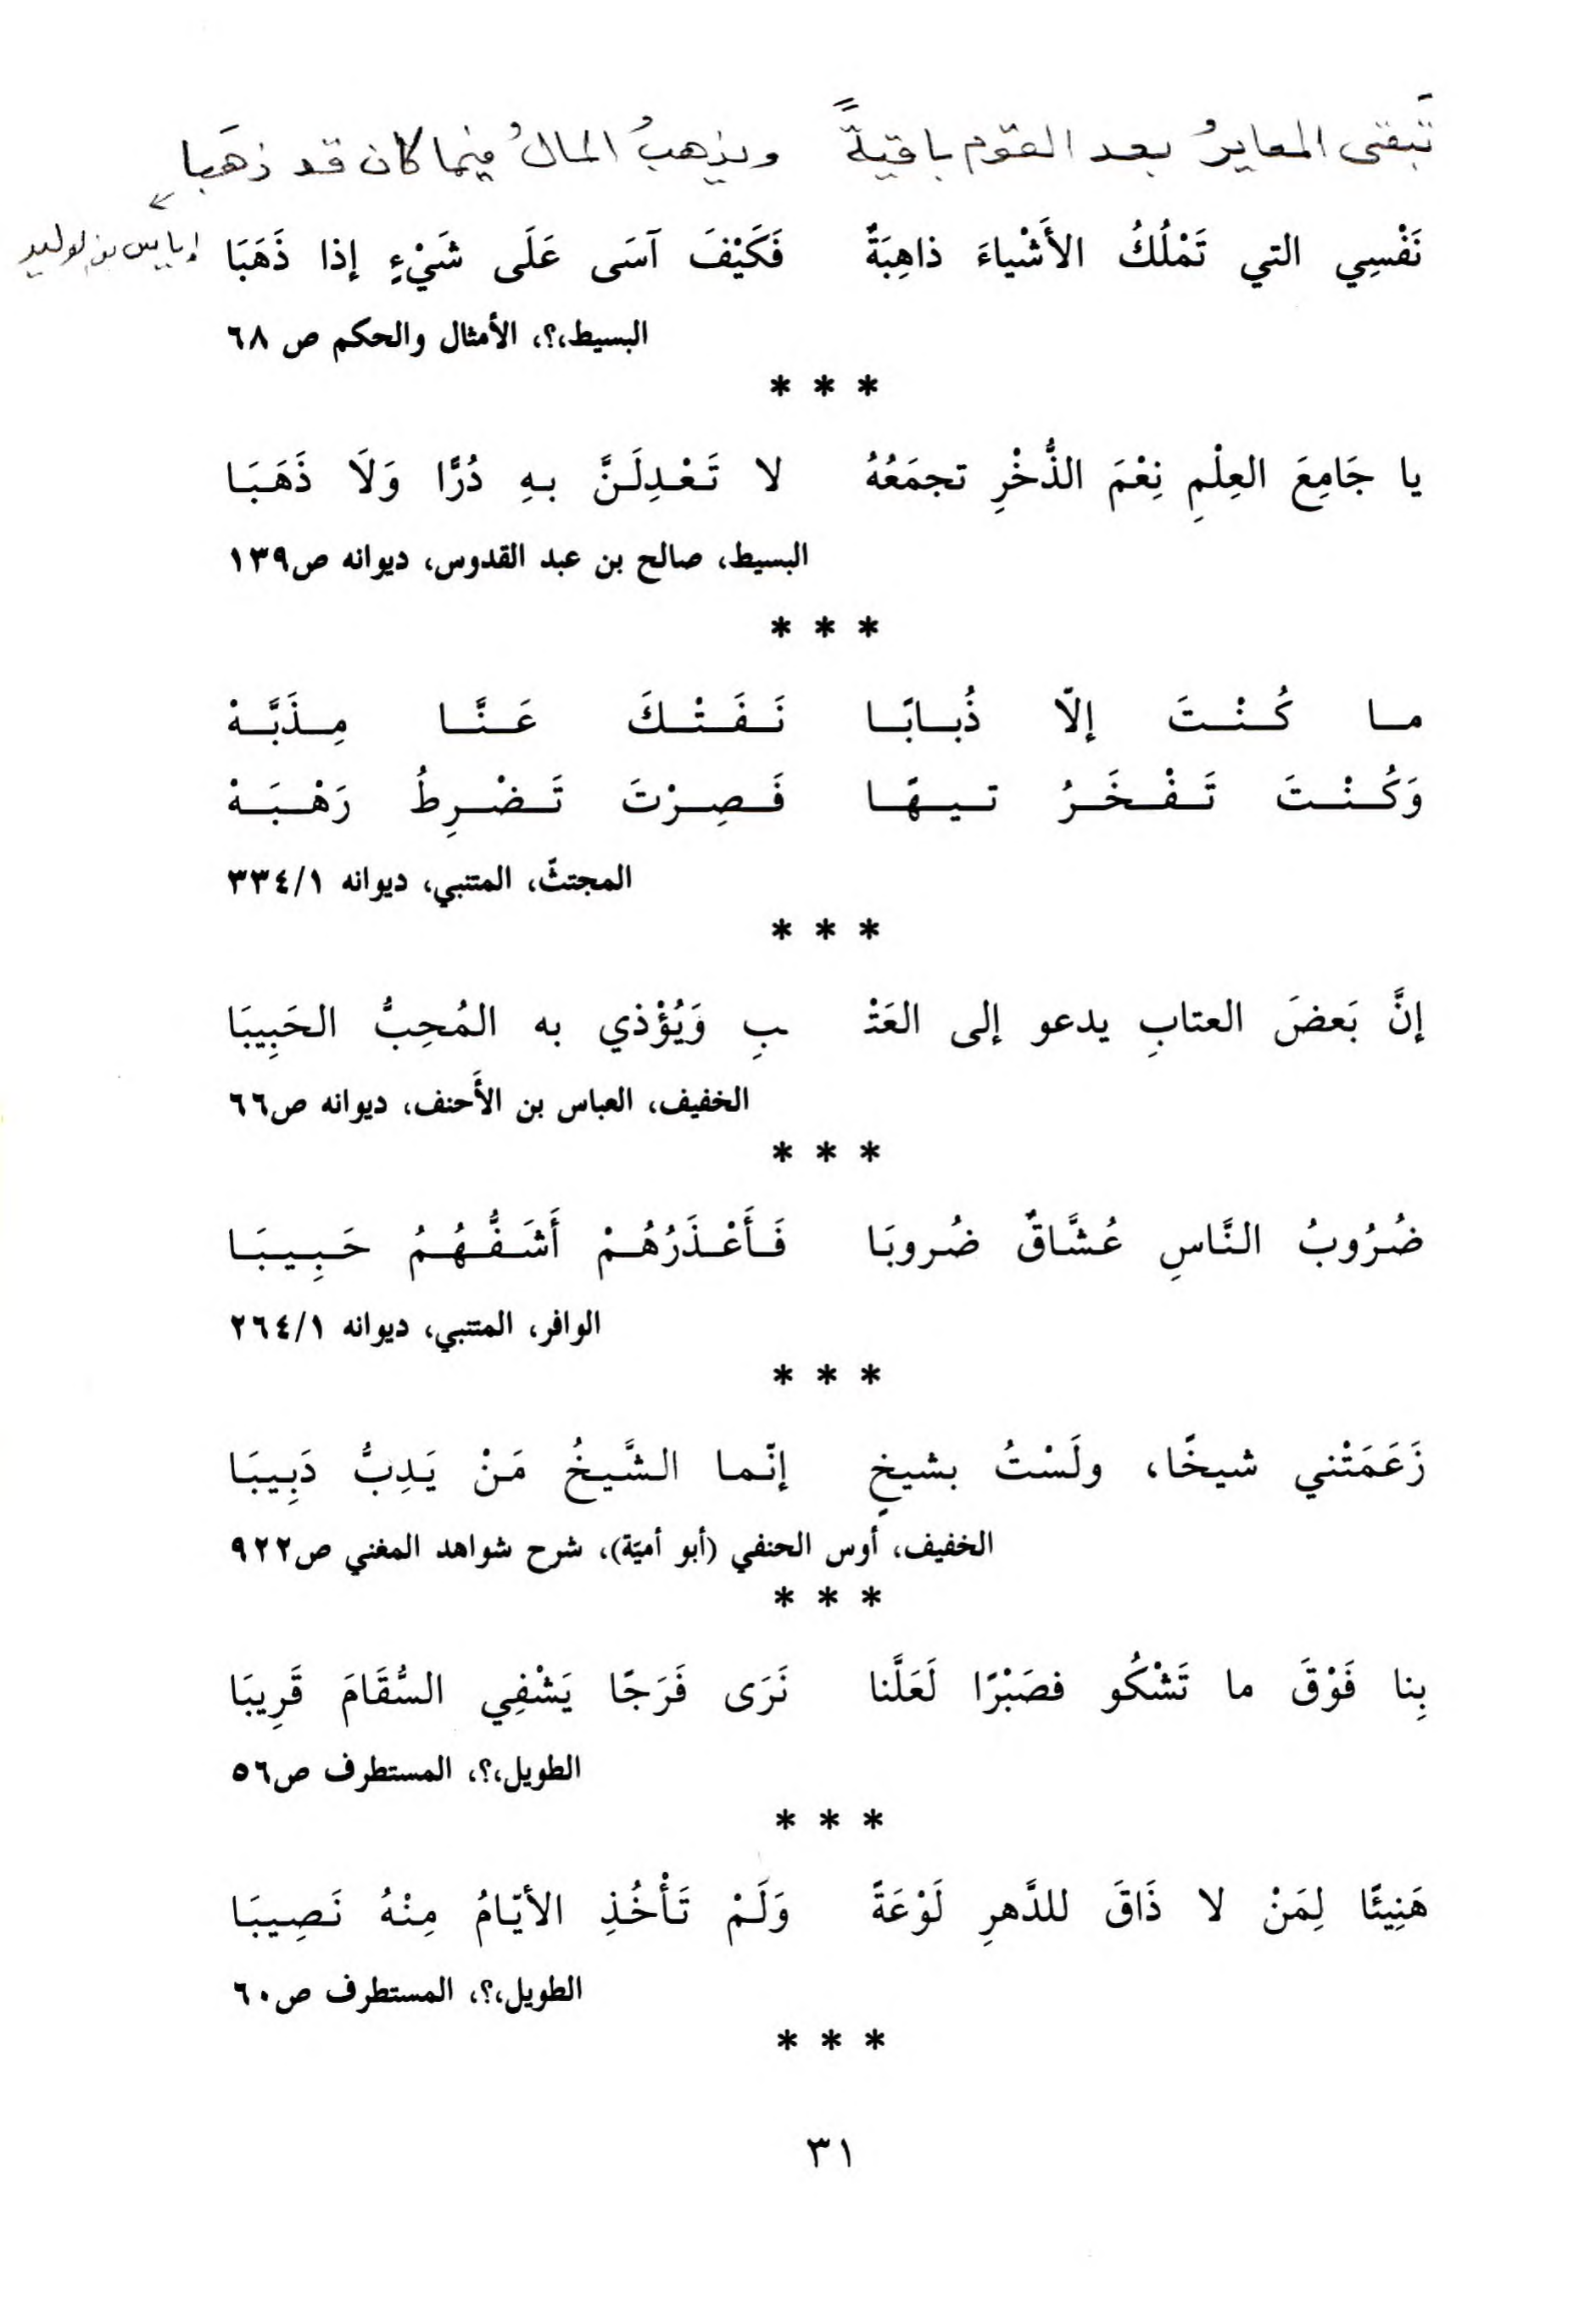 تَبقى المعايرُ بعد القوم باقيةً    ويذهبُ المالُ فيما كان قد ذهَبا
إياس بن الوليد
نَفْسِي التي تَمْلُكُ الأَشْياءَ ذاهِبَةٌ    فَكَيْفَ آسَى عَلَى شَيْءٍ إذا ذَهَبَا
البسيط،؟، الأمثال والحكم ص ٦٨
* * *
يا جَامِعَ العِلْمِ نِعْمَ الذُّخْرِ تجمَعُهُ    لا تَعْدِلَنَّ بهِ دُرًّا وَلَا ذَهَبَا
البسيط، صالح بن عبد القدوس، ديوانه ص١٣٩
* * *
ما كُنْتَ إلّا ذُبابًا    نَفَتْكَ عَنَّا مِذَبَّهْ
وَكُنْتَ تَفْخَرُ تيهًا    فَصِرْتَ تَضْرِطُ رَهْبَهْ
المجتثّ، المتنبي، ديوانه ٣٣٤/١
* * *
إنَّ بَعضَ العتابِ يدعو إلى العَتْـ    ـبِ وَيُؤْذي به المُحِبُّ الحَبِيبَا
الخفيف، العباس بن الأَحنف، ديوانه ص٦٦
* * *
ضُرُوبُ النَّاسِ عُشَّاقٌ ضُروبَا    فَأَعْذَرُهُمْ أَشَفُّهُمُ حَبِيبَا
الوافر، المتنبي، ديوانه ٢٦٤/١
* * *
زَعَمَتْني شيخًا، ولَسْتُ بشيخٍ    إنّما الشَّيخُ مَنْ يَدِبُّ دَبِيبَا
الخفيف، أوس الحنفي (أبو أميّة)، شرح شواهد المغني ص٩٢٢
* * *
بِنا فَوْقَ ما تَشْكُو فصَبْرًا لَعَلَّنا    نَرَى فَرَجًا يَشْفِي السُّقَامَ قَرِيبَا
الطويل،؟، المستطرف ص٥٦
* * *
هَنِيئًا لِمَنْ لا ذَاقَ للدَّهرِ لَوْعَةً    وَلَمْ تَأْخُذِ الأيّامُ مِنْهُ نَصِيبَا
الطويل،؟، المستطرف ص٦٠
* * *
٣١